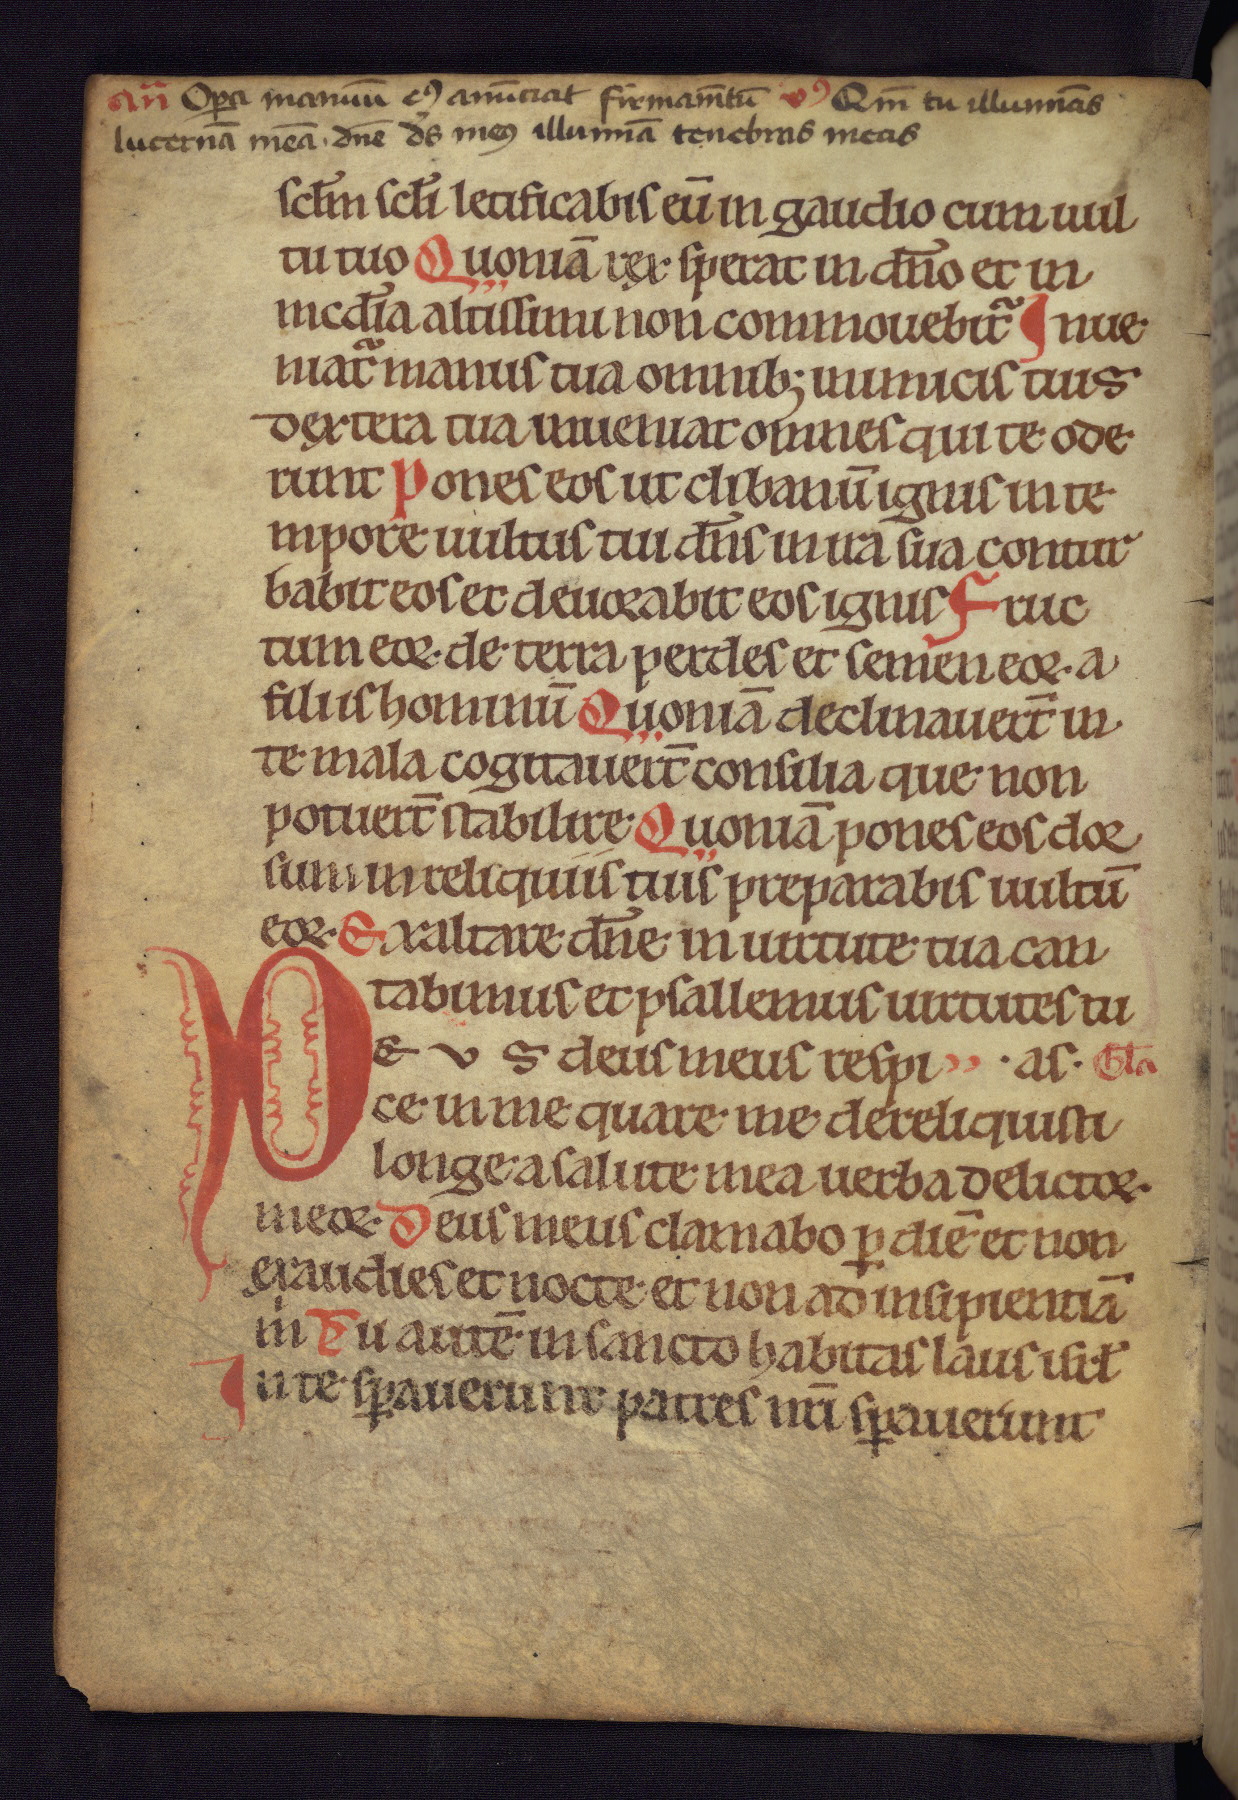 an̄ Oꝑa manuū eꝰ anūciat firmam̄tū vꝰ Qm̄ tu illuminas
lucernā meā. dn̄e ds̄ meꝰ illuminā tenebras meas
sclm̄ scl̄i letificabis eū in gaudio cum uul
tu tuo Quoniā rex sperat in dn̄o et in
mcd̄ia altissimi non commouebit᷑ Inue
niat᷑ manus tua omnibꝫ inimicis tuis
dextera tua inueniat omnes qui te ode
runt Pones eos ut clibanū ignis in te
mpore uultus tui dn̄s in ira sua contur
babit eos et deuorabit eos ignis Fruc
tum eoꝝ. de terra perdes et semen eoꝝ. a
filiis hominū Quoniā declinauer̄t in
te mala cogitauer̄t consilia que non
potuer̄t stabilire Quoniā pones eos dor
sum in reliquiis tuis preparabis uultū
eoꝝ. Exaltare dn̄e in uirtute tua can
tabimus et psallemus uirtutes tu
DEVS deus meus respi · as. Gl̄a
ce in me quare me dereliquisti
longe a salute mea uerba delictoꝝ.
meoꝝ. Deus meus clamabo ꝑ diē et non
exaudies et nocte et non ad insipientiā
m̍ Tu autē in sancto habitas laus isrl̄
In te sꝑauerunt patres nr̄i sꝑauerunt